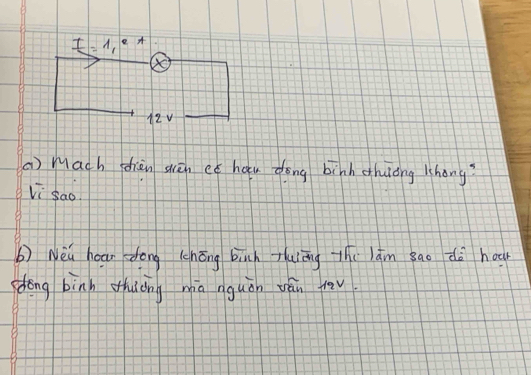 I = 1,2 A
12V
a) Mạch điện trên có hoạt động bình thường không?
Vì sao.
b) Nếu hoạt động không bình thường thì làm sao để hoạt
động bình thường mà nguồn vẫn 12V.